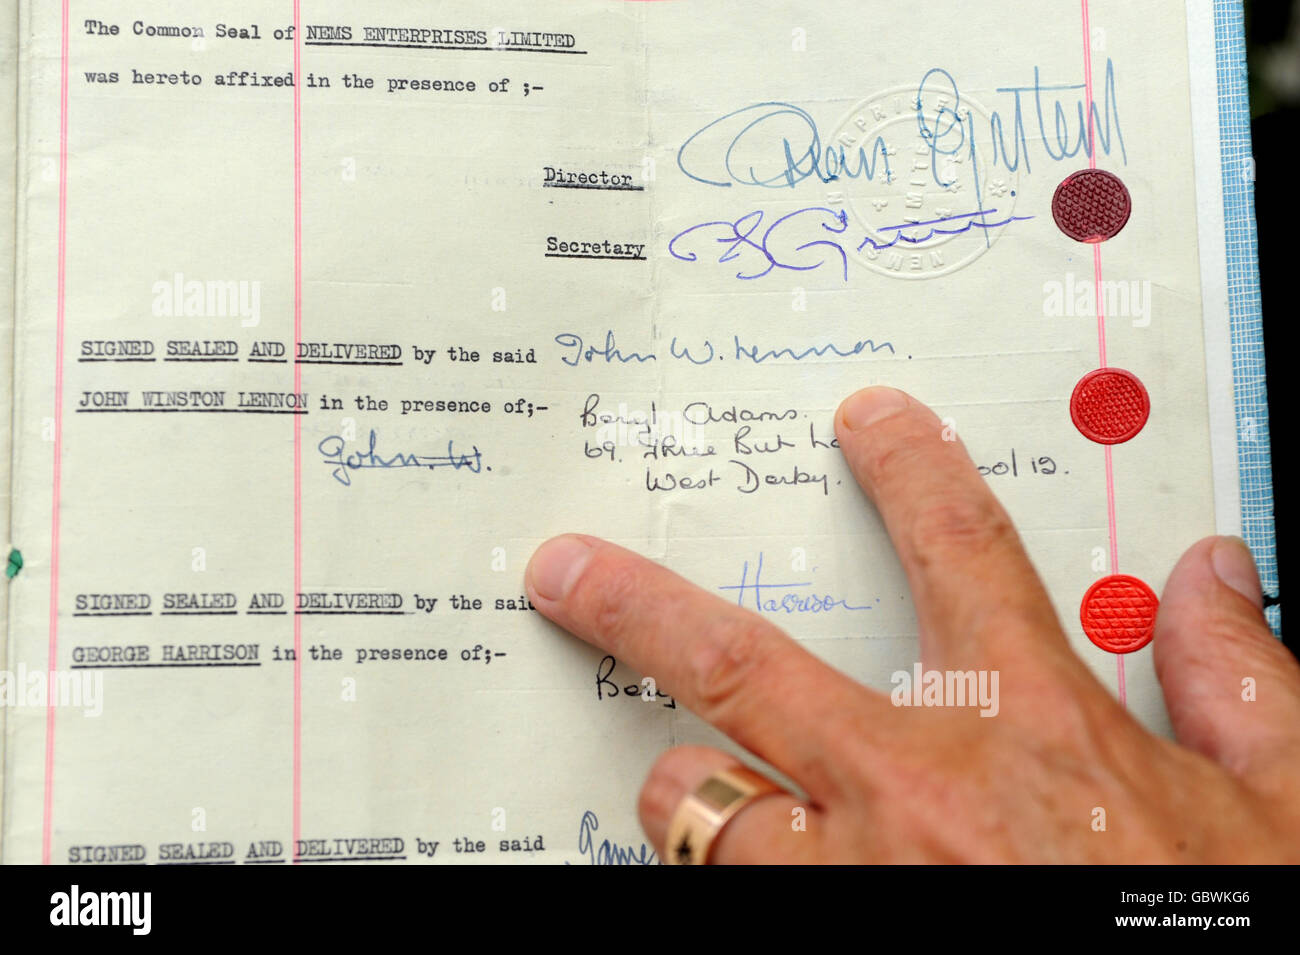 The Common Seal of NEMS ENTERPRISES LIMITED
was hereto affixed in the presence of ;-
Director
Secretary
NEMS ENTERPRISES LIMITED
SIGNED SEALED AND DELIVERED by the said John W. Lennon.
JOHN WINSTON LENNON in the presence of;- Beryl Adams.
69. Three But La
John. W. West Derby. pool 12.
SIGNED SEALED AND DELIVERED by the said Harrison.
GEORGE HARRISON in the presence of;-
Bery
SIGNED SEALED AND DELIVERED by the said James
alamy
Image ID: GBWKG6
www.alamy.com